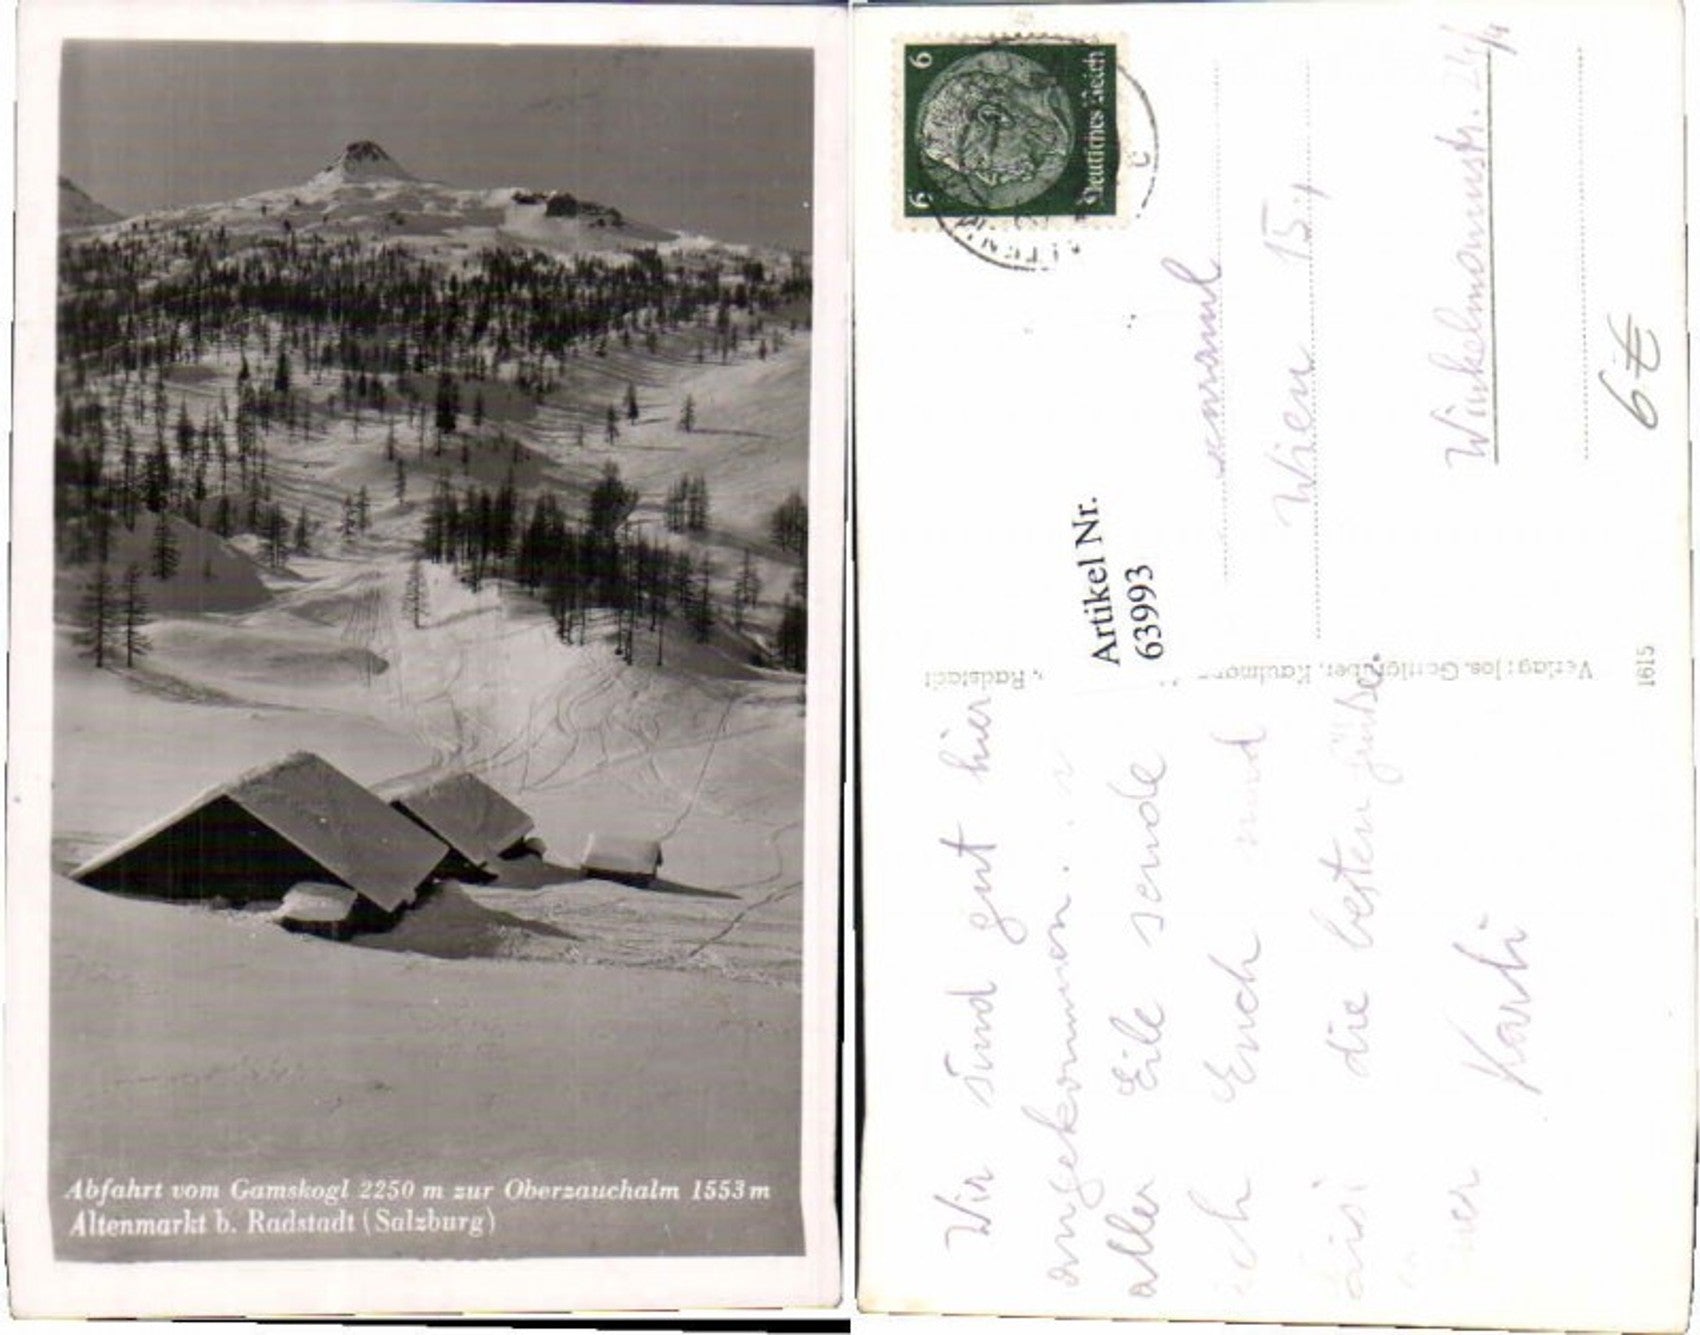 Abfahrt vom Gamskogl 2250 m zur Oberzauchalm 1553 m
Altenmarkt b. Radstadt (Salzburg)
6 Deutsches Reich 6
Wien 15.,
Winkelmannstr. 24/4
6 €
Artikel Nr.
63993
Radstadt
Verlag: Jos.
1615
Wir sind gut hier
angekommen.
aller Eile sende
ich Euch und
die besten Grüße
Karli